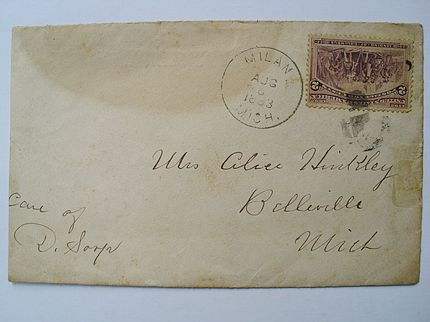 MILAN
AUG
1893
MICH.
2 2
Mrs Alice Hinkley
Belleville
Mich
Care of
D. Soop